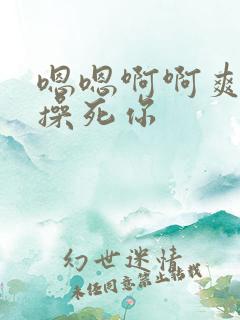 嗯嗯啊啊爽
操死你
幻世迷情
未经同意禁止转载